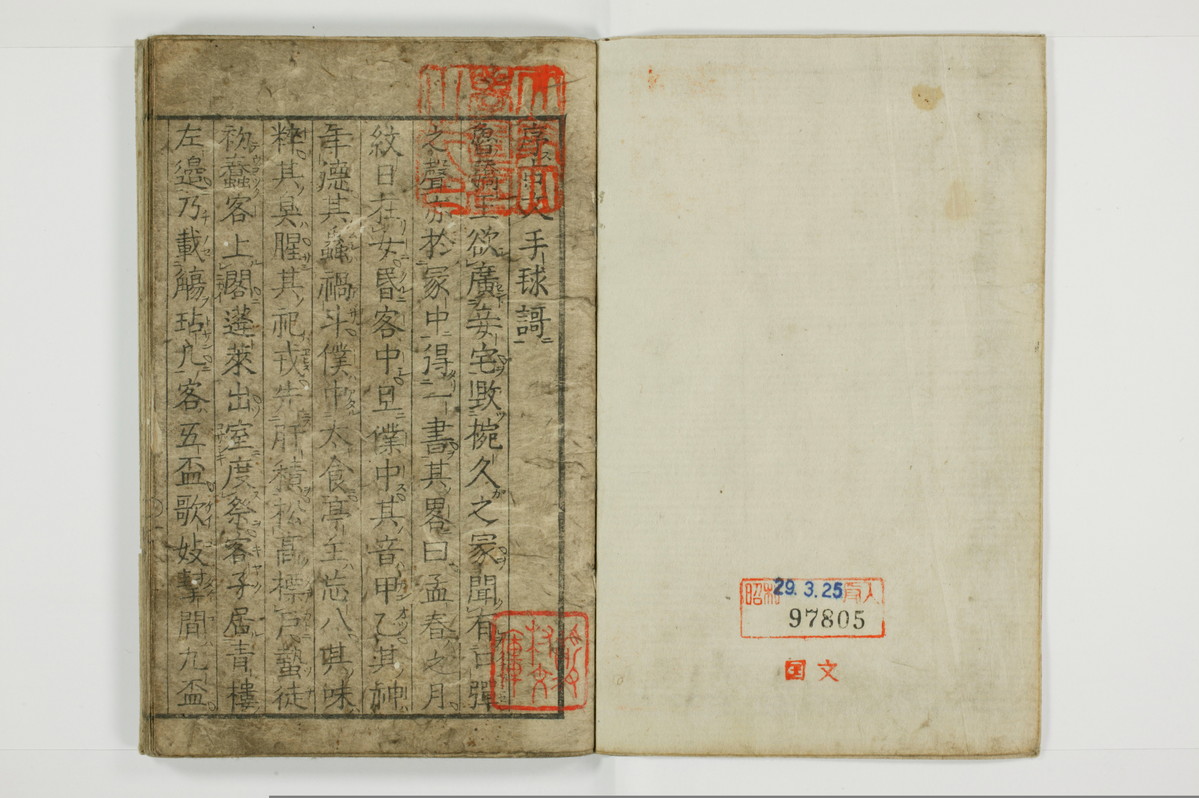 昭和29.3.25購入
97805
国文
手球謌
欲廣妾宅毀椀久之冢聞有
之聲亦於冢中得一書其畧曰孟春之月
紋日在女昏客中旦僕中其音甲乙其神
年德其蟲禍斗僕中太食亭主忘八其味
粹其臭腥其祀戎先肝積松高標戸蟄徒
初蠢客上閣蓬萊出室度祭客子居青樓
左邉乃載觴玷几客五盃歌妓間九盃